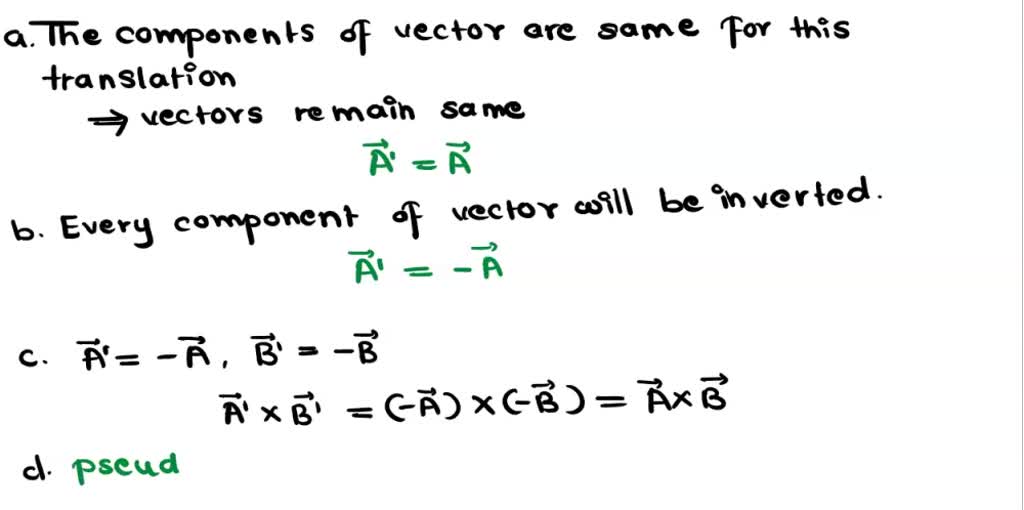 a. The components of vector are same for this
translation
⇒ vectors remain same
A⃗' = A⃗
b. Every component of vector will be inverted.
A⃗' = -A⃗
c. A⃗' = -A⃗, B⃗' = -B⃗
A⃗' × B⃗' = (-A⃗) × (-B⃗) = A⃗ × B⃗
d. pseud